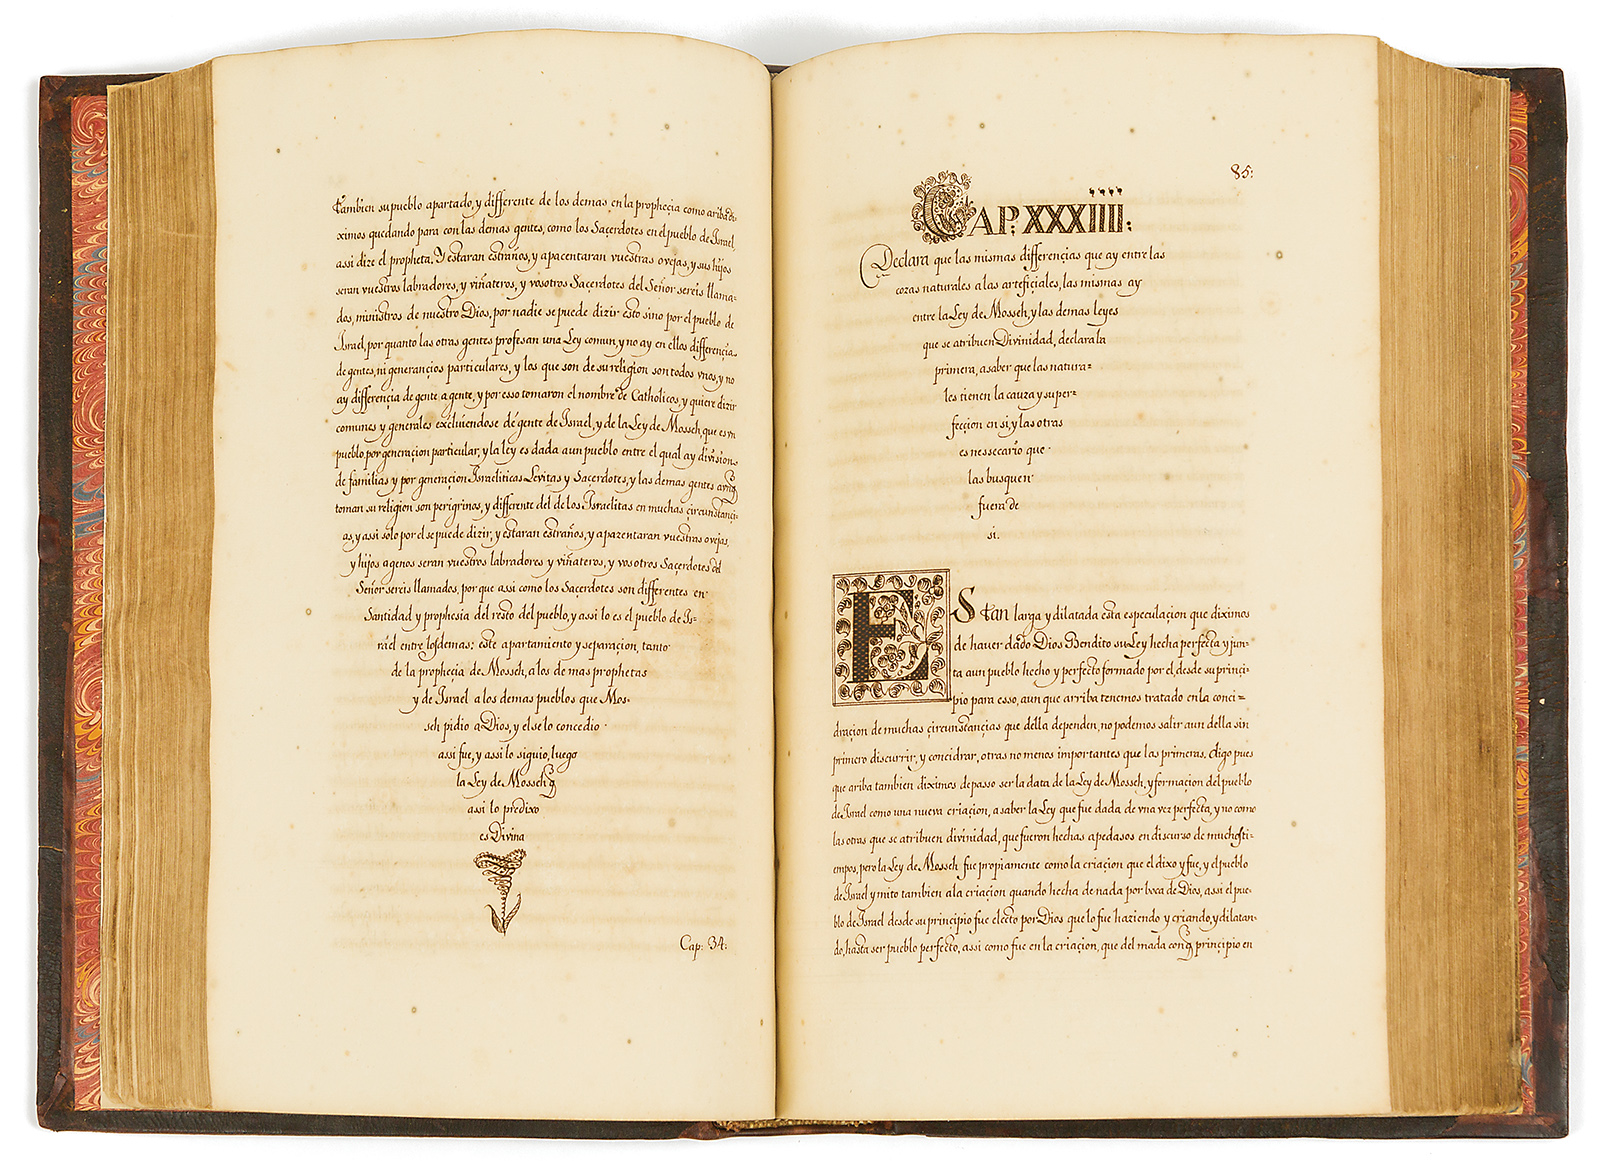 tambien su pueblo apartado, y differente de los demas en la prophecia como ariba di-
ximos quedando para con las demas gentes, como los Saçerdotes en el pueblo de Israel,
assi dize el propheta. Y estaran estraños, y apacentaran vuestras ovejas, y sus hijos
seran vuestros labradores, y viñateros, y vosotros Saçerdotes del Señor sereis llama-
dos, ministros de nuestro Dios, por nadie se puede dizir esto sino por el pueblo de
Israel, por quanto las otras gentes profesan una Ley comun, y no ay en ellas differençia
de gentes, ni generançios particulares, y los que son de su religion son todos vnos, y no
ay differençia de gente a gente, y por esso tomaron el nombre de Catholicos, y quiere dizir
comunes y generales excluiendose de gente de Israel, y de la Ley de Mosseh, que es vn
pueblo, por generaçion particular, y la ley es dada aun pueblo entre el qual ay division
de familias y por generaçion Israeliticas Levitas y Saçerdotes, y las demas gentes aunq
toman su religion son perigrinos, y differente del de los Israelitas en muchas çircunstanci-
as, y assi solo por el se puede dizir, y estaran estraños, y apazentaran vuestras ovejas,
y hijos agenos seran vuestros labradores y viñateros, y vosotros Saçerdotes del
Señor sereis llamados, por que assi como los Saçerdotes son differentes en
Santidad y prophesia del resto del pueblo, y assi lo es el pueblo de Is-
rael entre los demas: este apartamiento y separaçion, tanto
de la propheçia de Mosseh, a los de mas prophetas
y de Israel a los demas pueblos que Mos-
seh pidio a Dios, y el se lo concedio
assi fue, y assi lo siguio, luego
la Ley de Mosseh q
assi lo predixo
es Divina
Cap: 34:
85:
CAP: XXXIIII:
Declara que las mismas differençias que ay entre las
cozas naturales a las arteficiales, las mismas ay
entre la Ley de Mosseh, y las demas leyes
que se atribuen Divinidad, declara la
primera, a saber que las natura=
les tienen la cauza y super=
fecçion en si, y las otras
es nessecario que
las busquen
fuera de
si.
ES tan larga y dilatada esta especulaçion que diximos
de haver dado Dios Bendito su Ley hecha perfecta y jun-
ta aun pueblo hecho y perfecto formado por el, desde su prinçi-
pio para esso, aun que arriba tenemos tratado en la conci=
draçion de muchas çircunstançias que della dependen, no podemos salir aun della sin
primero discurrir, y concidrar, otras no menos importantes que las primeras. digo pues
que ariba tambien diximos de passo ser la data de la Ley de Mosseh, y formaçion del pueblo
de Israel como una nueva criaçion, a saber la Ley que fue dada de vna vez perfecta, y no como
las otras que se atribuen divinidad, que fueron hechas a pedasos en discurso de muchos ti-
empos, pero la Ley de Mosseh fue propiamente como la criaçion que el dixo y fue, y el pueblo
de Israel ymito tambien a la criaçion quando hecha de nada por boca de Dios, assi el pue-
blo de Israel desde su prinçipio fue electo por Dios que lo fue haziendo y criando, y dilatan-
do, hasta ser pueblo perfecto, assi como fue en la criaçion, que del nada con q prinçipio en